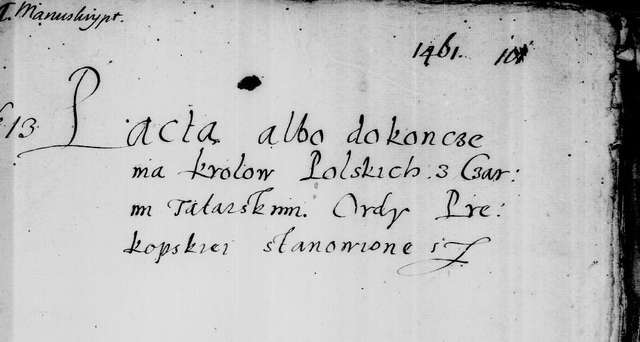 Manuskrypt.
1461. 101
13. Pacta albo dokoncze
nia krolow Polskich z Czar:
mi Tatarskimi. Ordy Pre:
kopskiei stanowione